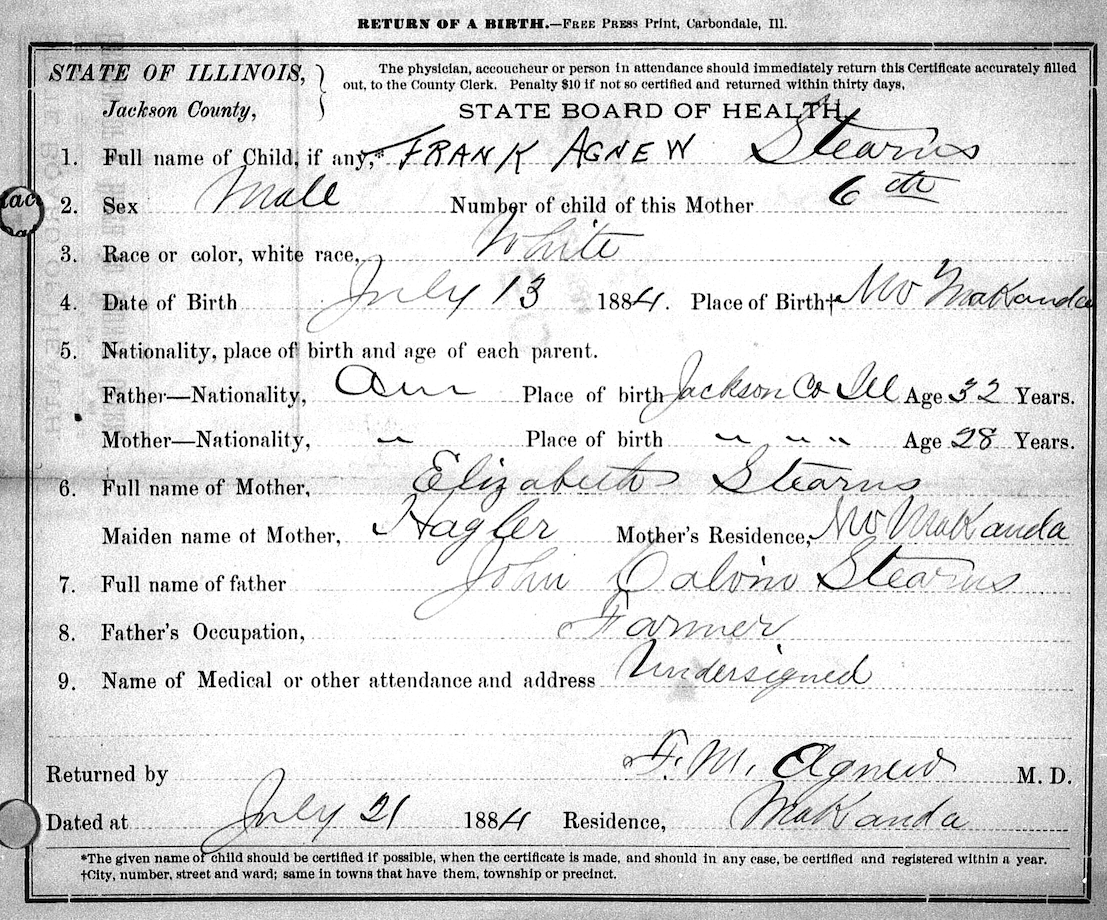 RETURN OF A BIRTH.—FREE PRESS Print, Carbondale, Ill.
STATE OF ILLINOIS,
Jackson County,
The physician, accoucheur or person in attendance should immediately return this Certificate accurately filled
out, to the County Clerk. Penalty $10 if not so certified and returned within thirty days,
STATE BOARD OF HEALTH.
1. Full name of Child, if any,* FRANK AGNEW Stearns
2. Sex Male Number of child of this Mother 6th
3. Race or color, white race, White
4. Date of Birth July 13 1884. Place of Birth† NW Makanda
5. Nationality, place of birth and age of each parent.
Father—Nationality, Am Place of birth Jackson Co Ill Age 32 Years.
Mother—Nationality, " Place of birth " " " Age 28 Years.
6. Full name of Mother, Elizabeth Stearns
Maiden name of Mother, Hagler Mother's Residence, NW Makanda
7. Full name of father John Calvin Stearns
8. Father's Occupation, Farmer
9. Name of Medical or other attendance and address Undersigned
Returned by F. M. Agnew M. D.
Dated at July 21 1884 Residence, Makanda
*The given name of child should be certified if possible, when the certificate is made, and should in any case, be certified and registered within a year.
†City, number, street and ward; same in towns that have them, township or precinct.